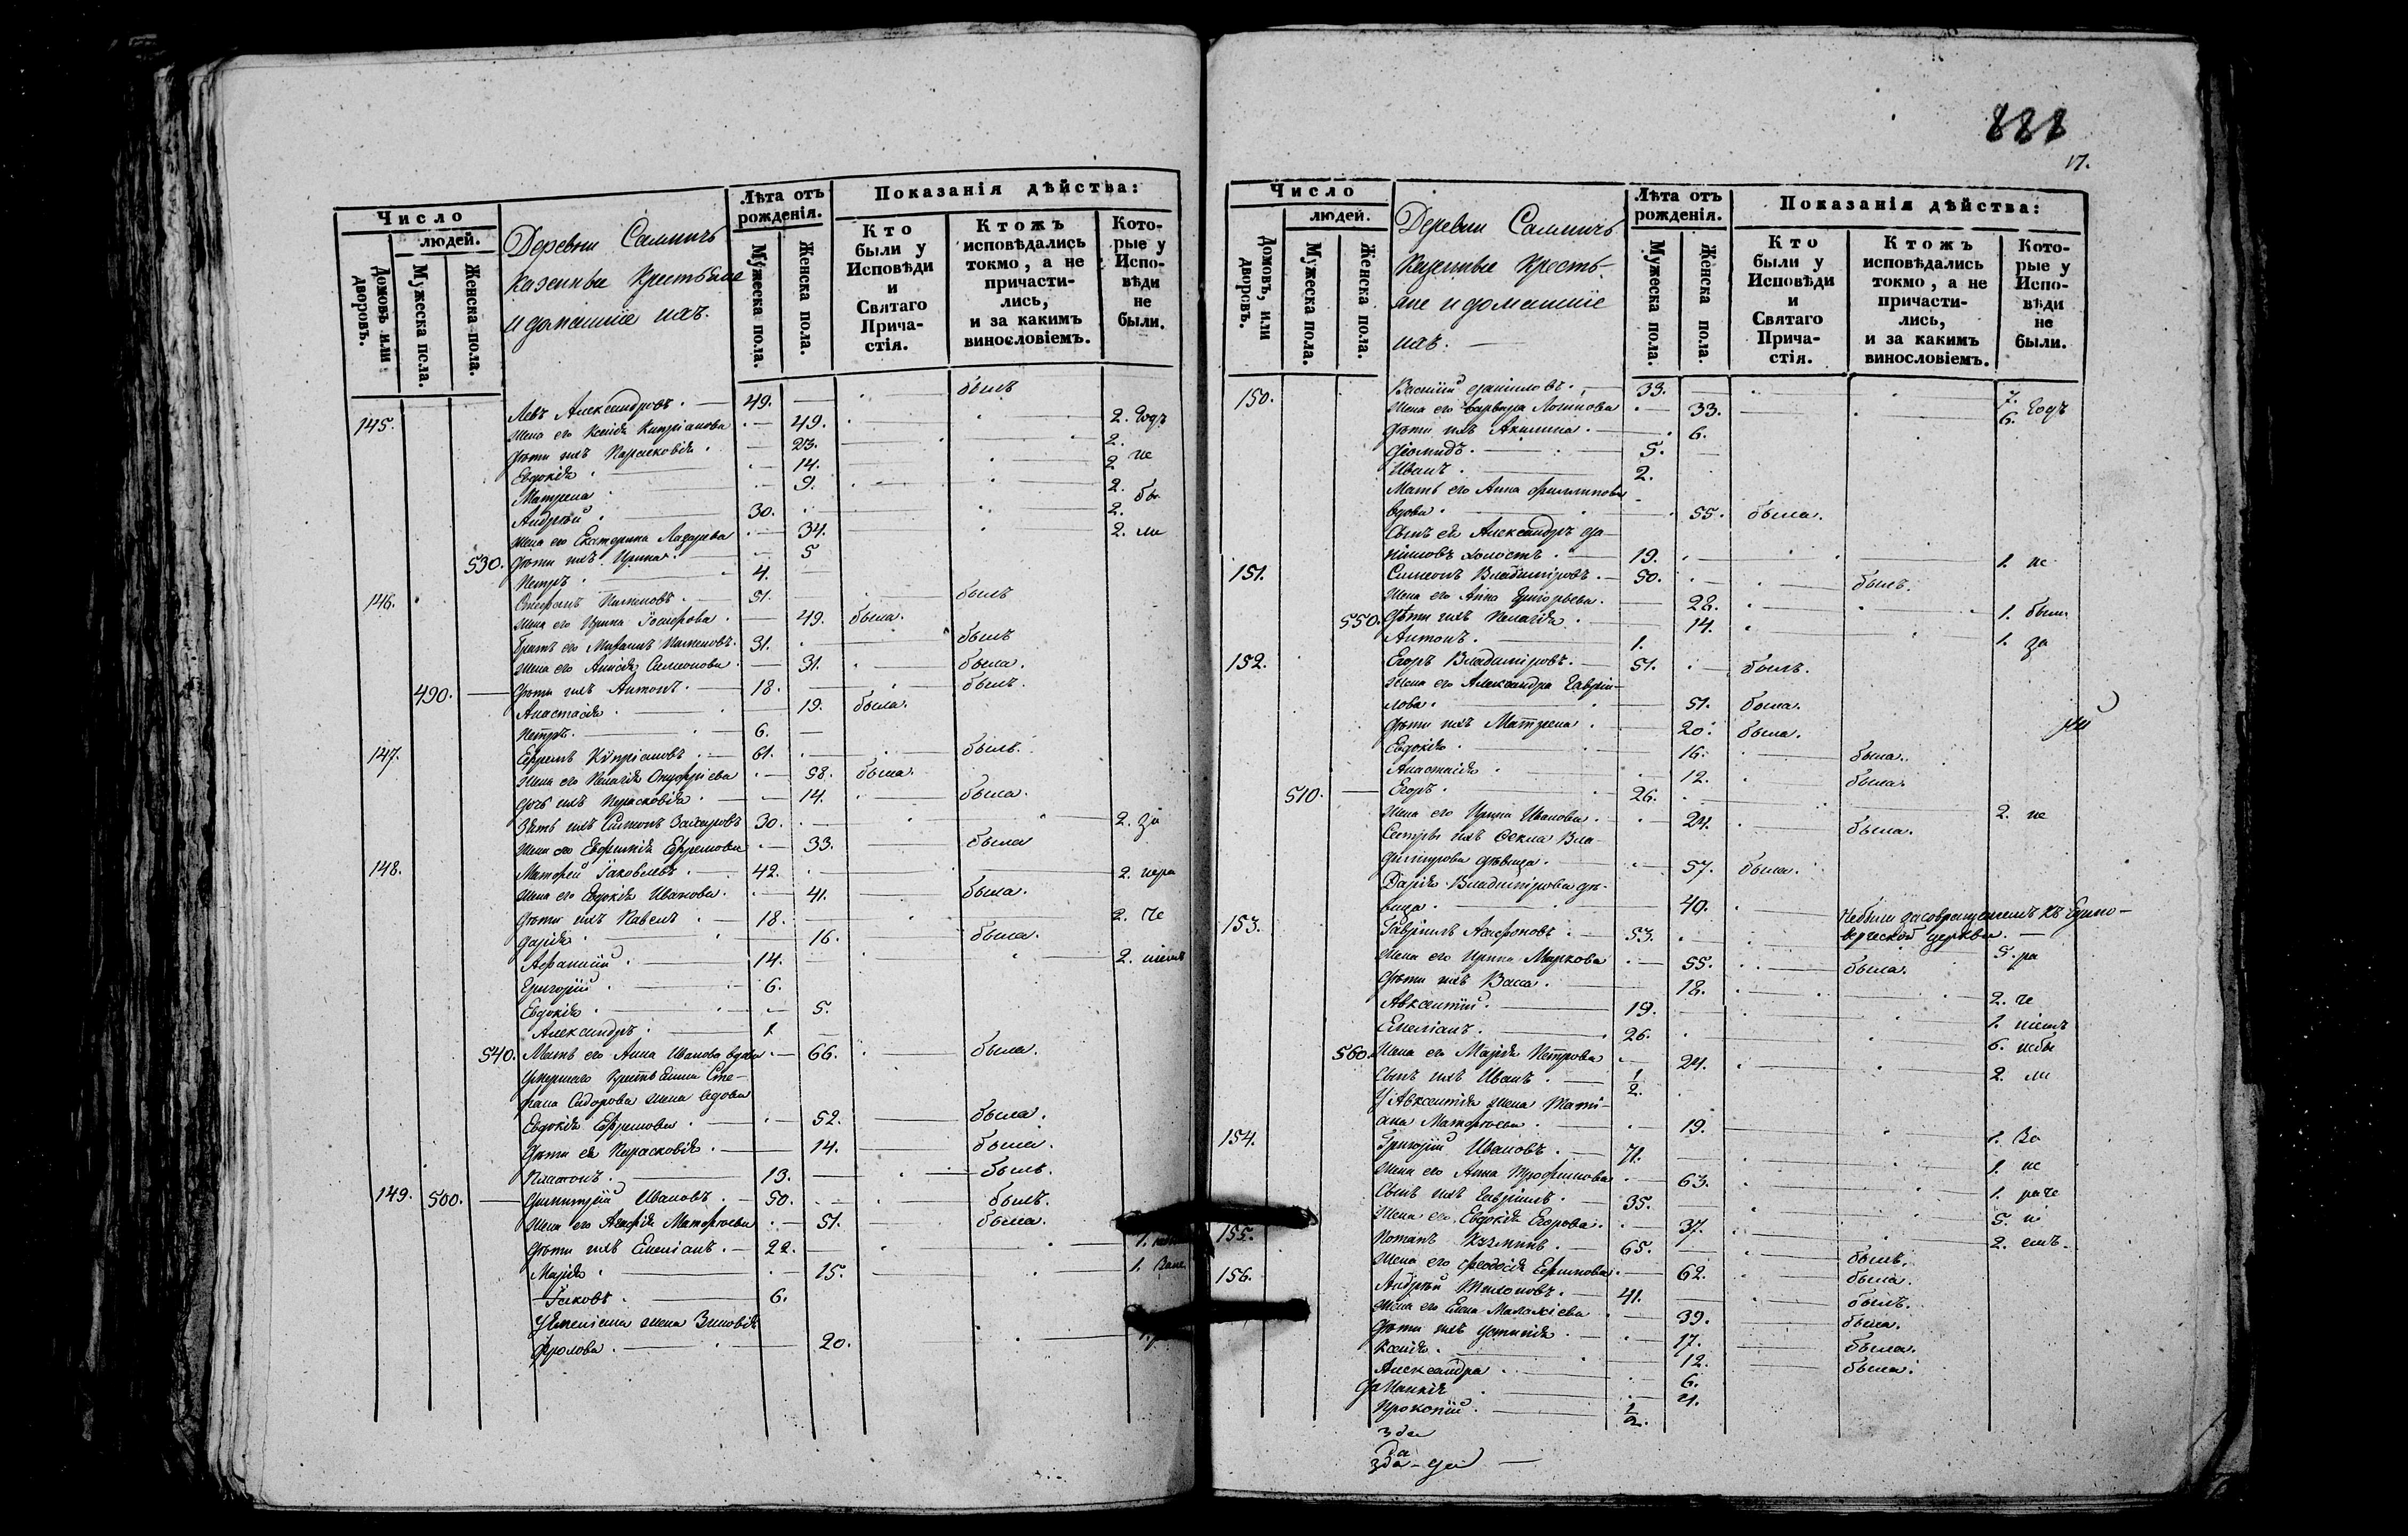 888
17.
Число
людей.
Домовъ или дворовъ.
Мужеска пола.
Женска пола.
Деревни
казенные Крестьяне
и домашніе ихъ.
Лѣта отъ рожденія.
Мужеска пола.
Женска пола.
Показанія дѣйства:
Кто были у Исповѣди и Святаго Причастія.
Ктожъ исповѣдались токмо, а не причастились, и за какимъ винословіемъ.
Которые у Исповѣди не были.
145. Левъ Александровъ. 49. былъ
жена его Ксенія Кипріанова 49. 2. годъ
дѣти ихъ Парасковія 23. 2.
Евдокія 14. 2. не
Матрена 9. 2. бы
Андрей 30. 2.
жена его Екатерина Лазарева 34. 2. ли
530. дѣти ихъ Ирина 5
Петръ 4.
146. Стефанъ 51. былъ
жена его Ирина 49. была.
братъ его 31. былъ
жена его Симеонова 31. была.
490. дѣти ихъ Антонъ 18. былъ.
Анастасія 19. была.
Петръ. 6.
147. Ефремъ Кипріановъ 61. былъ.
жена его Пелагія Онуфріева 58. была.
дочь ихъ Парасковія 14. была.
Зять ихъ Захаровъ 30. 2. за
жена его Ефремова 33. была
148. Матфей Іаковлевъ 42. 2. нера
жена его Евдокія Иванова. 41. была.
дѣти ихъ Павелъ 18. 2. че
Дарія 16. была.
Афанасій 14. 2. ніемъ
Григорій 6.
Евдокія 5.
Александръ. 1.
540. Мать его Анна Иванова вдова 66. была.
умершаго Крестьянина Сте-
фана Сидорова жена вдова
Евдокія Ефремова 52. была.
дѣти ея Парасковія 14. была.
Платонъ. 13. былъ.
149. 500. Димитрій Ивановъ 50. былъ.
жена его Агафія Матфеева 51. была.
дѣти ихъ Емеліанъ. 22. 1.
Марія 15. 1.
Іаковъ. 6.
У Емеліана жена Зиновія
Фролова. 20.
Число
людей.
Домовъ, или дворовъ.
Мужеска пола.
Женска пола.
Деревни
Казенные Кресть-
яне и домашніе
ихъ.
Лѣта отъ рожденія.
Мужеска пола.
Женска пола.
Показанія дѣйства:
Кто были у Исповѣди и Святаго Причастія.
Ктожъ исповѣдались токмо, а не причастились, и за какимъ винословіемъ.
Которые у Исповѣди не были.
150. Василій Даниловъ. 33. 7.
жена его Варвара Логинова 33. 6. годъ
дѣти ихъ Акилина. 6.
Діомидъ. 5.
Иванъ. 2.
Мать его Анна Филиппова
вдова. 55. была.
Сынъ ея Александръ Да-
ниловъ холостъ. 19. 1. не
151. Симеонъ Владиміровъ. 50. былъ.
жена его Анна Григорьева. 28. 1. были
550. дѣти ихъ Пелагія 14. 1. за
Антонъ. 1.
152. Егоръ Владиміровъ. 51. былъ.
жена его Александра Гаврии-
лова. 51. была.
дѣти ихъ Матрена 20. была.
Евдокія 16. была.
Анастасія 12. была.
510. Егоръ. 26. 2. не
жена его Ирина Иванова 24. была.
Сестры ихъ Фекла Вла-
димирова дѣвица. 57. была.
Дарія Владимірова дѣ-
вица. 49. Небыли за совращеніемъ къ Едино-
верческой церкви.
153. Гавріилъ 53. 5. ра
жена его Ирина Маркова 55. была.
дѣти ихъ Васса. 18. 2. че
Авксентій. 19. 1. ніемъ
Емеліанъ. 26. 6. небы
560. жена его Марія Петрова 24. 2. ли
Сынъ ихъ Иванъ. 1/2.
У Авксентія жена Тати-
ана Матфеева 19. 1.
154. Григорій Ивановъ. 71. 1. не
жена его Анна Трофимова 63. 1. раче
Сынъ ихъ Гавріилъ. 35. 5. ні
жена его Евдокія Егорова. 37. 2. емъ.
155. Романъ 65. былъ.
жена его Феодосія Ефимова 62. была.
156. Андрей Тихоновъ. 41. былъ.
жена его Елена Малахіева 39. была.
дѣти ихъ Устинія 17. была.
Ксенія. 12. была.
Александра 6.
4.
Прокопій 1/2.